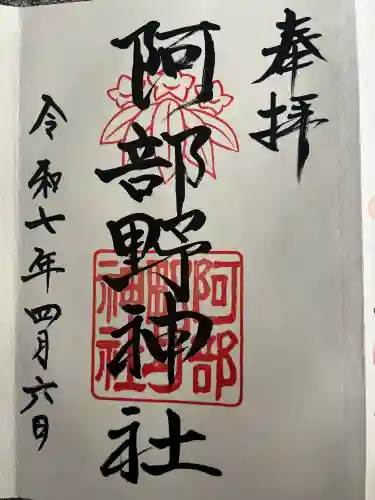 奉拝
阿部野神社
阿部
野
神社
令和七年四月六日